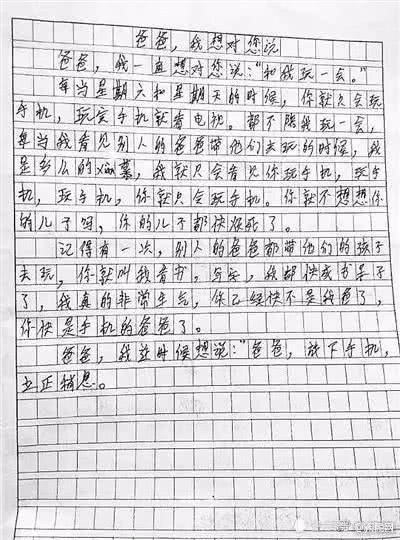 爸爸，我想对您说
爸爸，我一直想对您说：“和我玩一会。”
每当星期六和星期天的时候，你就只会玩
手机，玩完手机就看电视。都不陪我玩一会，
每当我看见别人的爸爸带他们去玩的时候，我
是多么的xiàn慕，我就只会看见你玩手机，玩手
机，玩手机，你就只会玩手机。你就不想想你
的儿子吗，你的儿子都快没死了。
记得有一次，别人的爸爸都带他们的孩子
去玩，你就叫我看书，写字，我都快成书呆子
了，我真的非常生气，你已经快不是我爸了，
你快是手机的爸爸了。
爸爸，我这时候想说：“爸爸，放下手机，
立正稍息。